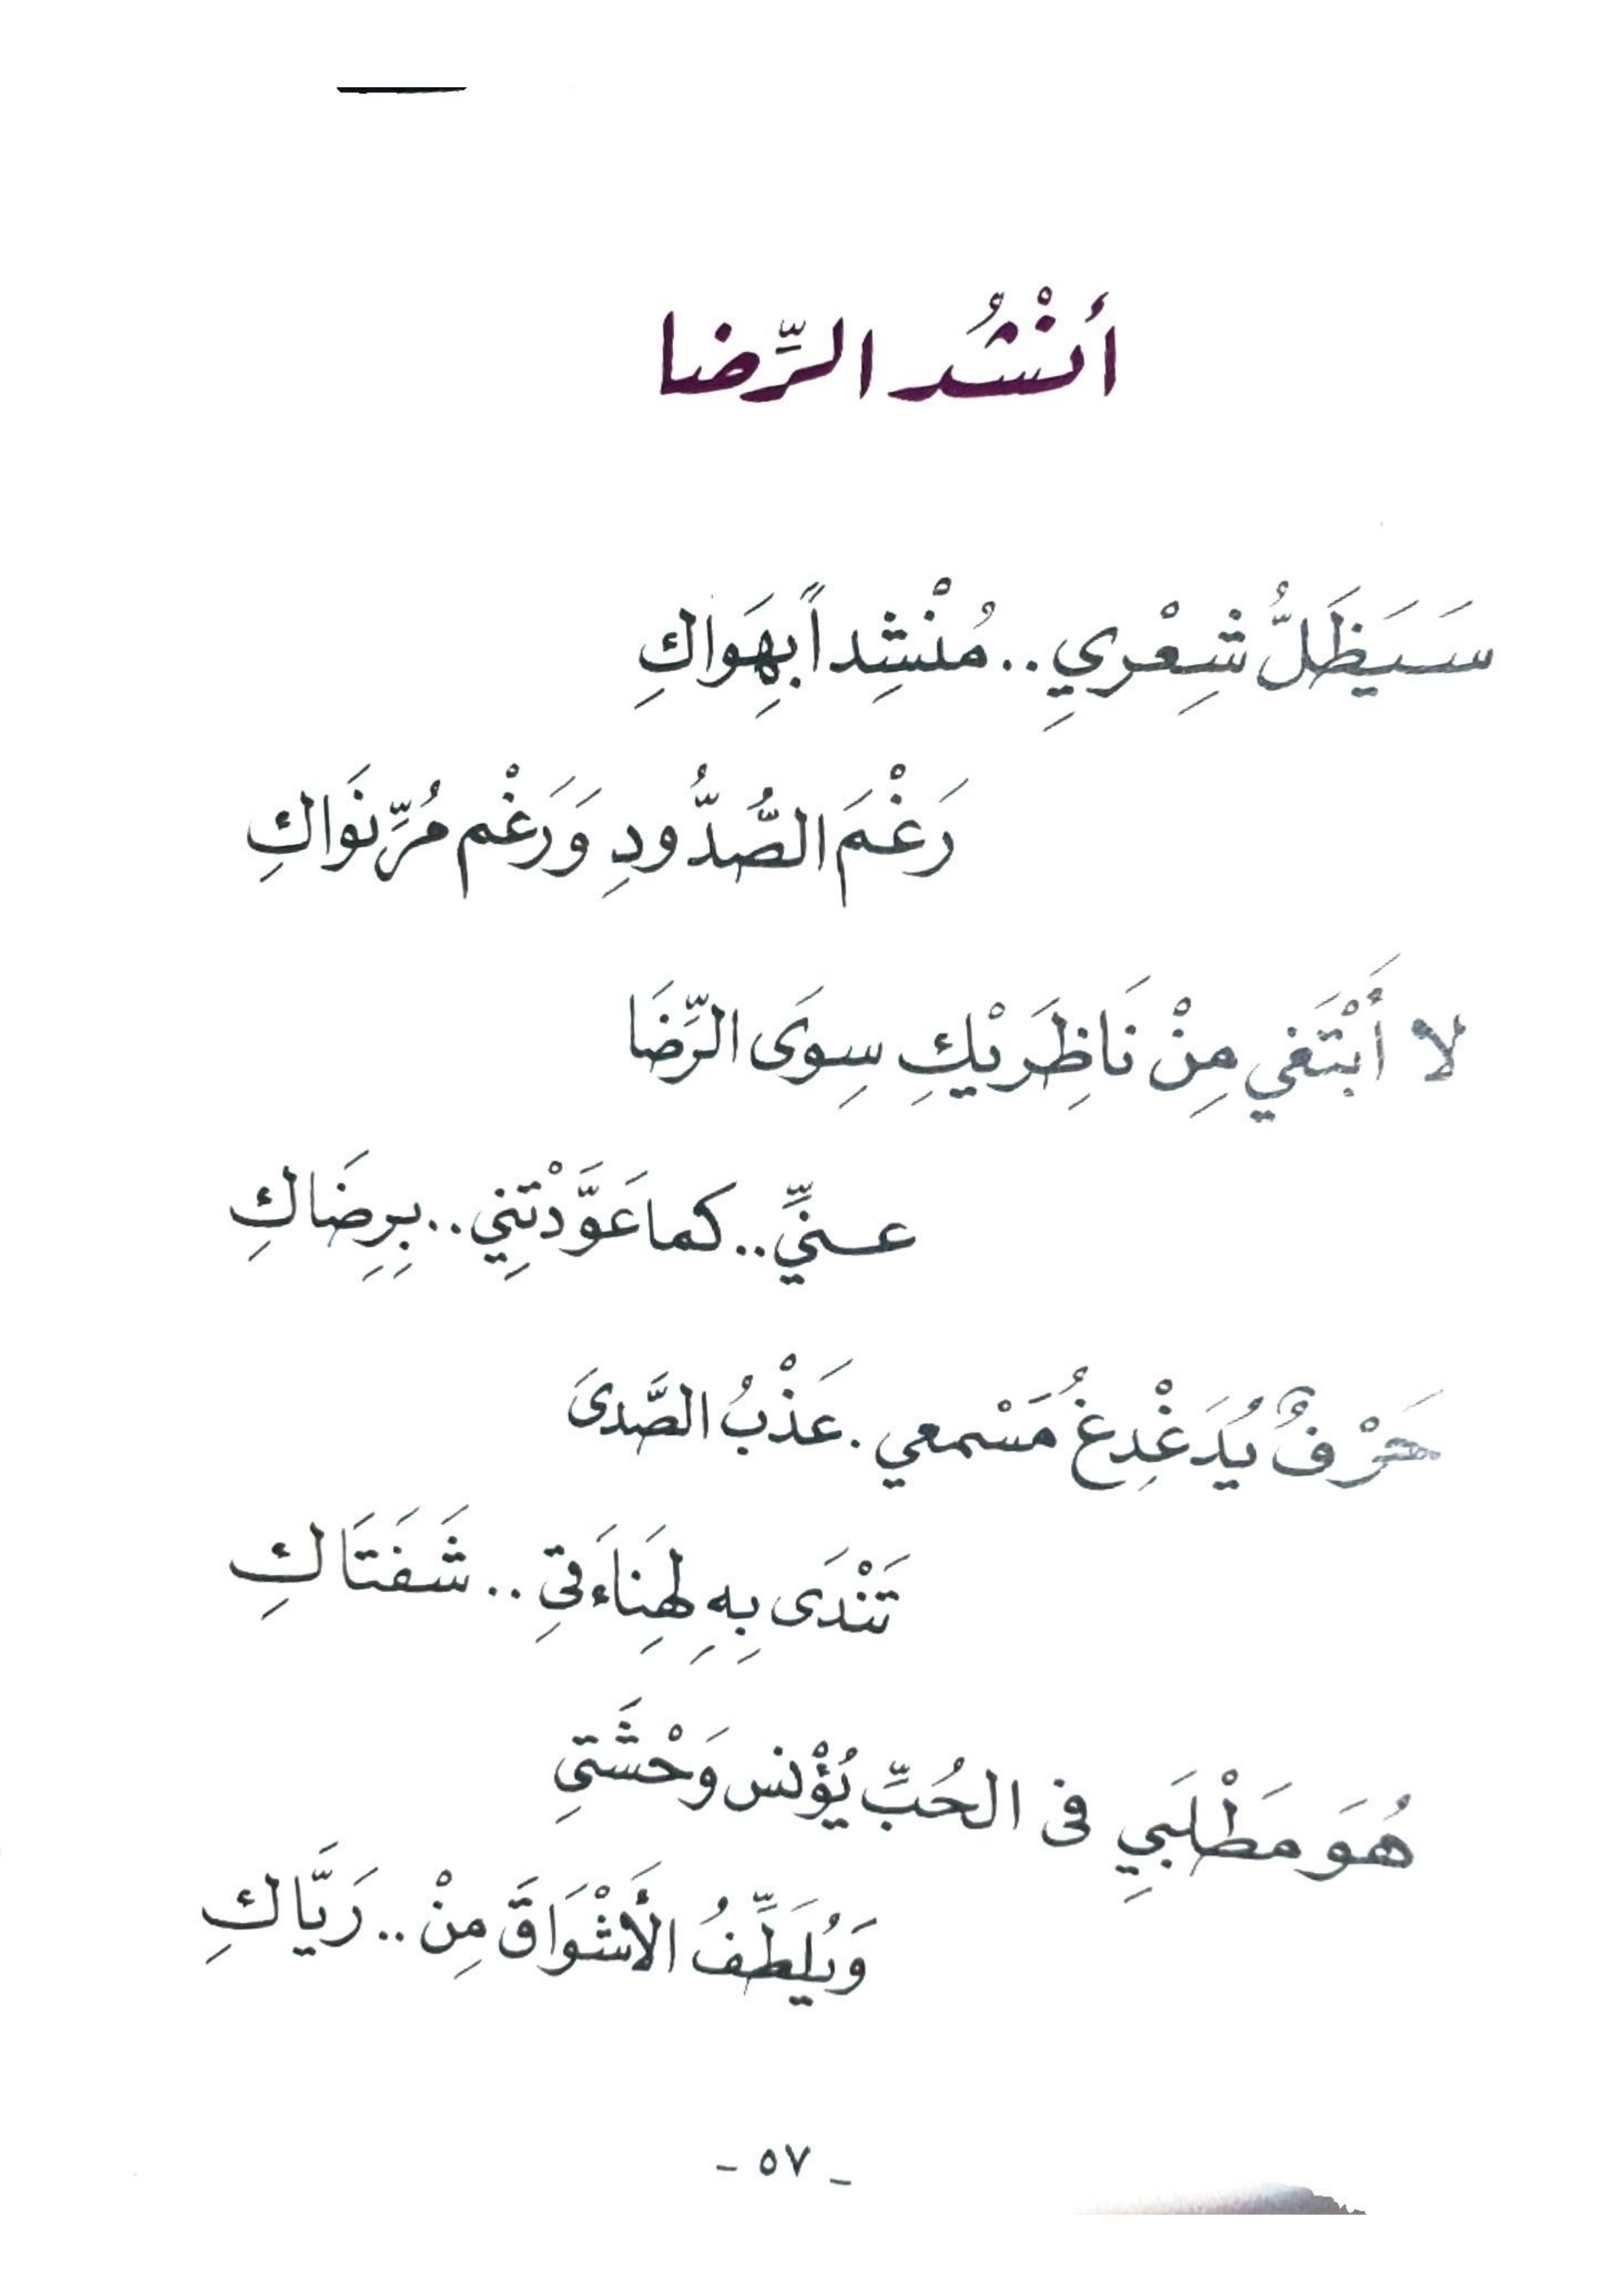 أنْشُد الرِّضا
سَيَظَلُّ شِعْرِي .. مُنْشِداً بِهَواكِ
رَغْمَ الصُّدُّودِ وَرَغْم مُرِّ نَواكِ
لا أَبْتَغي مِنْ نَاظِرَيْكِ سِوَى الرِّضَا
عنِّي .. كما عَوَّدْتَنِي .. بِرِضَاكِ
حَرْفٌ يُدَغْدِغُ مَسْمعي . عَذْبُ الصَّدىَ
تَنْدَى بِهِ لِهَنِاءَتِي .. شَفَتَاكِ
هُوَ مَطْلَبِي في الحُبِّ يُؤْنس وَحْشَتِي
وَيُلَطِّفُ الأَشْوَاقَ مِنْ .. رَيَّاكِ
- ٥٧ -